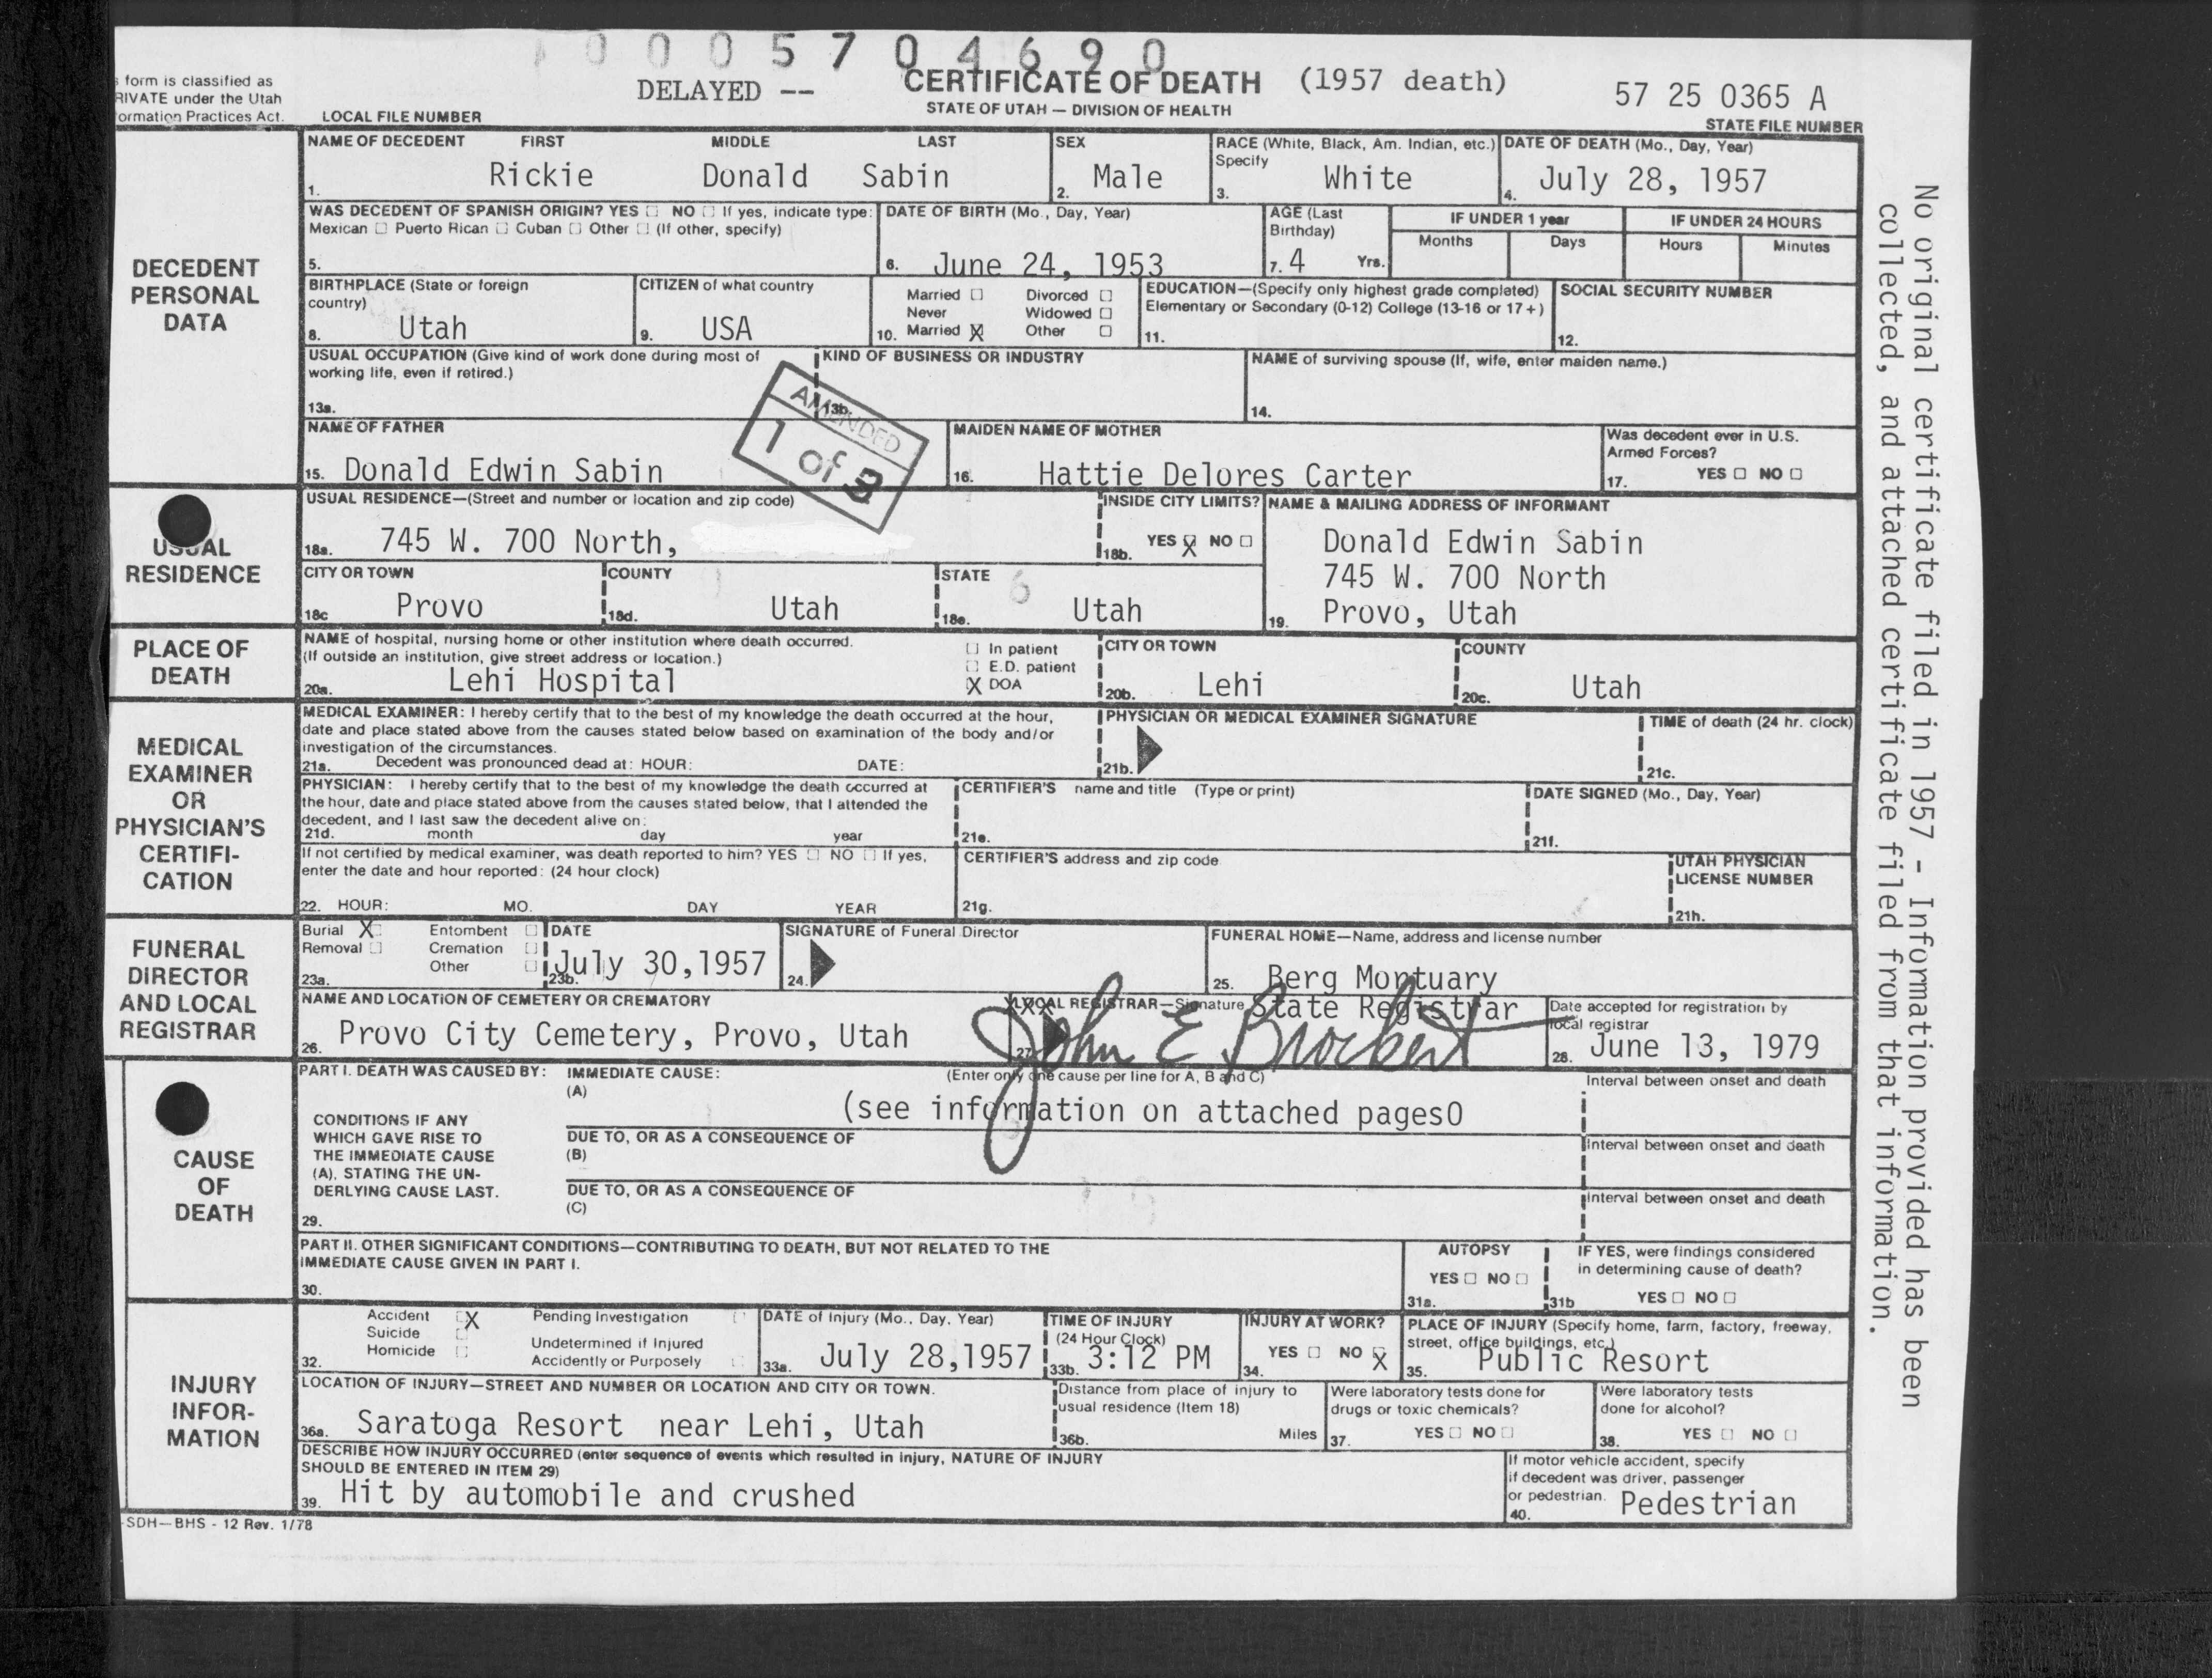 0005704690
s form is classified as
RIVATE under the Utah
ormation Practices Act.
LOCAL FILE NUMBER
DELAYED -- CERTIFICATE OF DEATH (1957 death)
STATE OF UTAH — DIVISION OF HEALTH
57 25 0365 A
STATE FILE NUMBER
DECEDENT
PERSONAL
DATA
NAME OF DECEDENT FIRST MIDDLE LAST
1. Rickie Donald Sabin
SEX
2. Male
RACE (White, Black, Am. Indian, etc.)
Specify
3. White
DATE OF DEATH (Mo., Day, Year)
4. July 28, 1957
WAS DECEDENT OF SPANISH ORIGIN? YES ☐ NO ☐ If yes, indicate type:
Mexican ☐ Puerto Rican ☐ Cuban ☐ Other ☐ (If other, specify)
5.
DATE OF BIRTH (Mo., Day, Year)
6. June 24, 1953
AGE (Last
Birthday)
7. 4 Yrs.
IF UNDER 1 year
Months Days
IF UNDER 24 HOURS
Hours Minutes
BIRTHPLACE (State or foreign
country)
8. Utah
CITIZEN of what country
9. USA
Married ☐ Divorced ☐
Never Widowed ☐
10. Married X Other ☐
EDUCATION—(Specify only highest grade completed)
Elementary or Secondary (0-12) College (13-16 or 17+)
11.
SOCIAL SECURITY NUMBER
12.
USUAL OCCUPATION (Give kind of work done during most of
working life, even if retired.)
13a.
KIND OF BUSINESS OR INDUSTRY
13b.
NAME of surviving spouse (If, wife, enter maiden name.)
14.
AMENDED
1 of 3
NAME OF FATHER
15. Donald Edwin Sabin
MAIDEN NAME OF MOTHER
16. Hattie Delores Carter
Was decedent ever in U.S.
Armed Forces?
17. YES ☐ NO ☐
USUAL
RESIDENCE
USUAL RESIDENCE—(Street and number or location and zip code)
18a. 745 W. 700 North,
INSIDE CITY LIMITS?
18b. YES X NO ☐
NAME & MAILING ADDRESS OF INFORMANT
Donald Edwin Sabin
745 W. 700 North
19. Provo, Utah
CITY OR TOWN
18c Provo
COUNTY
18d. Utah
STATE
18e. Utah
PLACE OF
DEATH
NAME of hospital, nursing home or other institution where death occurred.
(If outside an institution, give street address or location.)
20a. Lehi Hospital
☐ In patient
☐ E.D. patient
X DOA
CITY OR TOWN
20b. Lehi
COUNTY
20c. Utah
MEDICAL
EXAMINER
OR
PHYSICIAN'S
CERTIFI-
CATION
MEDICAL EXAMINER: I hereby certify that to the best of my knowledge the death occurred at the hour,
date and place stated above from the causes stated below based on examination of the body and/or
investigation of the circumstances.
21a. Decedent was pronounced dead at: HOUR: DATE:
PHYSICIAN OR MEDICAL EXAMINER SIGNATURE
21b.
TIME of death (24 hr. clock)
21c.
PHYSICIAN: I hereby certify that to the best of my knowledge the death occurred at
the hour, date and place stated above from the causes stated below, that I attended the
decedent, and I last saw the decedent alive on:
21d. month day year
CERTIFIER'S name and title (Type or print)
21e.
DATE SIGNED (Mo., Day, Year)
21f.
If not certified by medical examiner, was death reported to him? YES ☐ NO ☐ If yes,
enter the date and hour reported: (24 hour clock)
22. HOUR: MO. DAY YEAR
CERTIFIER'S address and zip code
21g.
UTAH PHYSICIAN
LICENSE NUMBER
21h.
FUNERAL
DIRECTOR
AND LOCAL
REGISTRAR
Burial X Entombent ☐
Removal ☐ Cremation ☐
23a. Other ☐
DATE
23b. July 30,1957
SIGNATURE of Funeral Director
24.
FUNERAL HOME—Name, address and license number
25. Berg Mortuary
NAME AND LOCATION OF CEMETERY OR CREMATORY
26. Provo City Cemetery, Provo, Utah
XXX LOCAL REGISTRAR—Signature State Registrar
27. John E Brockert
Date accepted for registration by
local registrar
28. June 13, 1979
CAUSE
OF
DEATH
PART I. DEATH WAS CAUSED BY: IMMEDIATE CAUSE: (Enter only one cause per line for A, B and C)
(A)
(see information on attached pages0
Interval between onset and death
CONDITIONS IF ANY
WHICH GAVE RISE TO
THE IMMEDIATE CAUSE
(A), STATING THE UN-
DERLYING CAUSE LAST.
29.
DUE TO, OR AS A CONSEQUENCE OF
(B)
Interval between onset and death
DUE TO, OR AS A CONSEQUENCE OF
(C)
Interval between onset and death
PART II. OTHER SIGNIFICANT CONDITIONS—CONTRIBUTING TO DEATH, BUT NOT RELATED TO THE
IMMEDIATE CAUSE GIVEN IN PART I.
30.
AUTOPSY
YES ☐ NO ☐
31a.
IF YES, were findings considered
in determining cause of death?
31b YES ☐ NO ☐
INJURY
INFOR-
MATION
Accident X Pending Investigation ☐
Suicide ☐ Undetermined if Injured
Homicide ☐ Accidently or Purposely ☐
32.
DATE of Injury (Mo., Day, Year)
33a. July 28,1957
TIME OF INJURY
(24 Hour Clock)
33b. 3:12 PM
INJURY AT WORK?
34. YES ☐ NO X
PLACE OF INJURY (Specify home, farm, factory, freeway,
street, office buildings, etc.)
35. Public Resort
LOCATION OF INJURY—STREET AND NUMBER OR LOCATION AND CITY OR TOWN.
36a. Saratoga Resort near Lehi, Utah
Distance from place of injury to
usual residence (Item 18)
36b. Miles
Were laboratory tests done for
drugs or toxic chemicals?
37. YES ☐ NO ☐
Were laboratory tests
done for alcohol?
38. YES ☐ NO ☐
DESCRIBE HOW INJURY OCCURRED (enter sequence of events which resulted in injury, NATURE OF INJURY
SHOULD BE ENTERED IN ITEM 29)
39. Hit by automobile and crushed
If motor vehicle accident, specify
if decedent was driver, passenger
or pedestrian.
40. Pedestrian
SDH—BHS - 12 Rev. 1/78
No original certificate filed in 1957 - Information provided has been
collected, and attached certificate filed from that information.